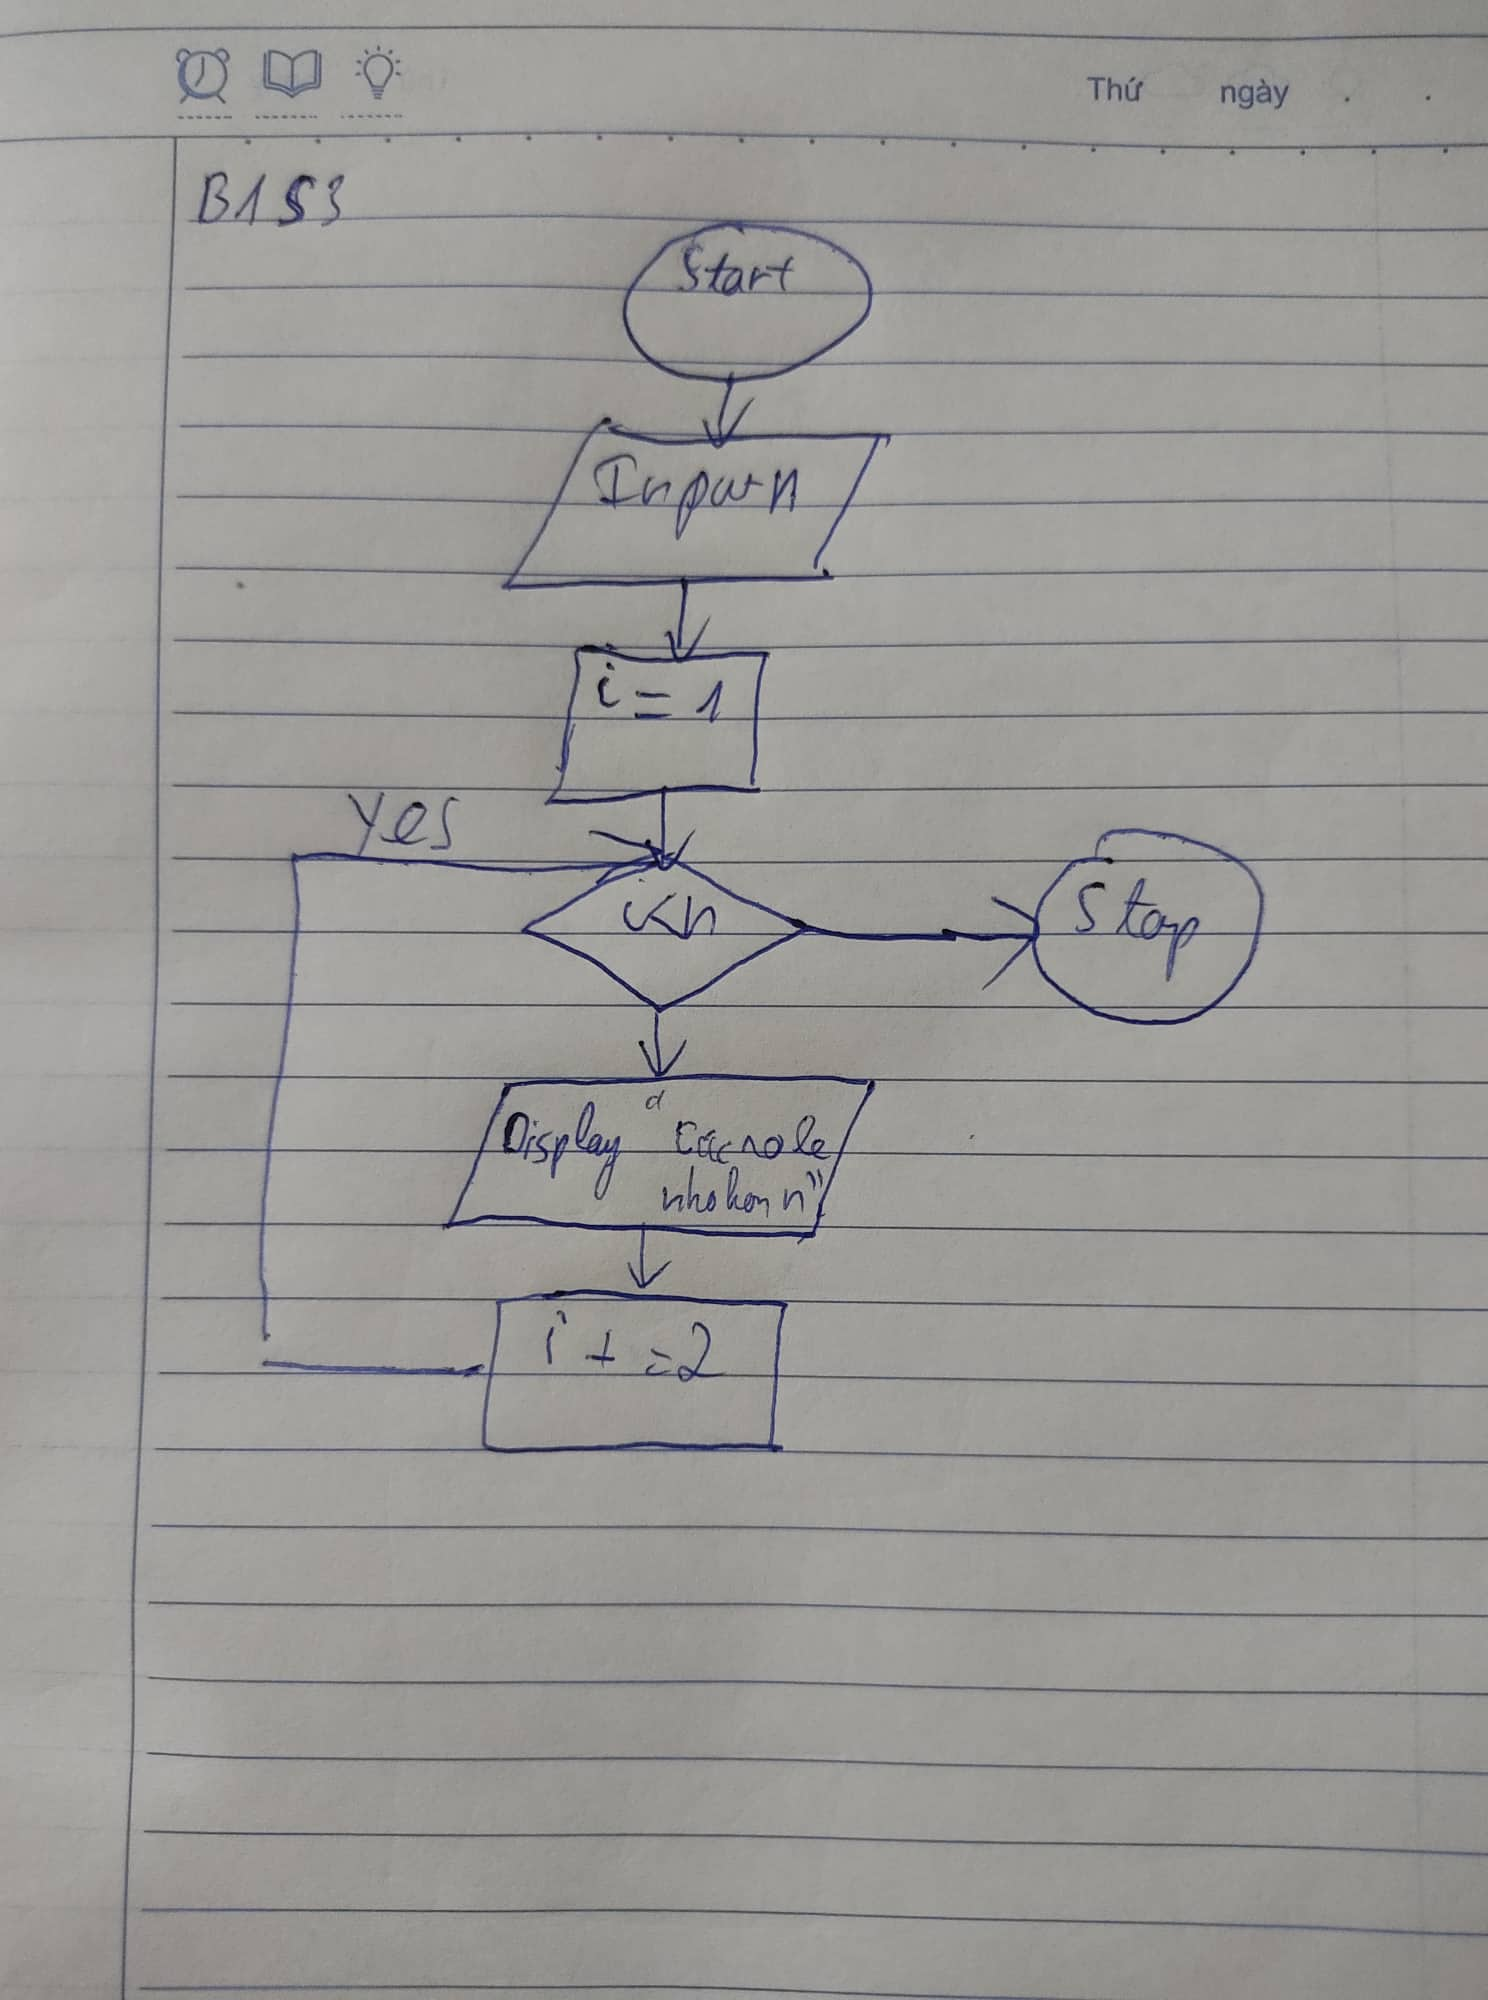 Thứ ngày . .
B1S3
Start
Input n
i = 1
Yes
i<n
Stop
Display "Các số lẻ
nhỏ hơn n"
i + = 2